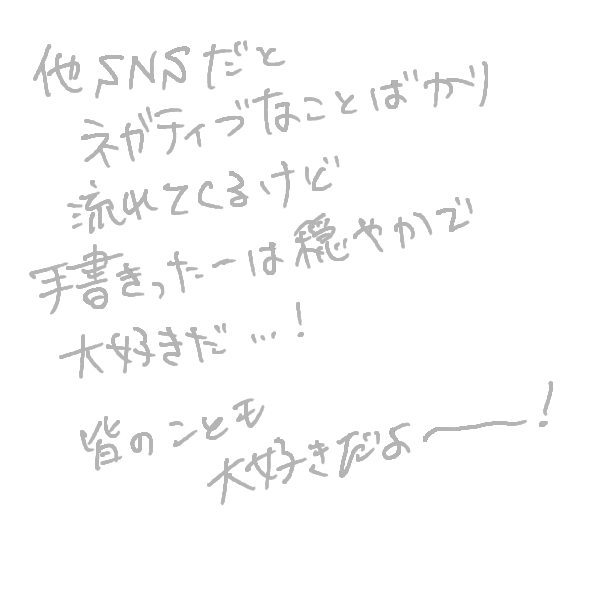 他SNSだと
ネガティブなことばかり
流れてくるけど
手書きったーは穏やかで
大好きだ…！
皆のことも
大好きだよ――！